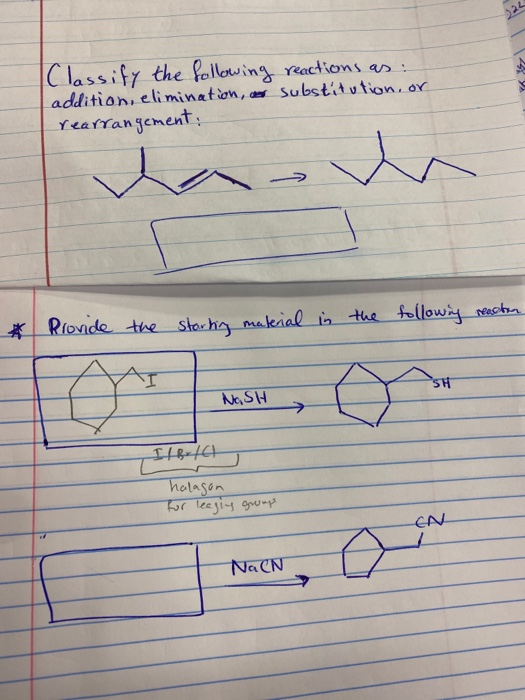 Classify the following reactions as :
addition, elimination, substitution, or
rearrangement:
* Provide the starting material in the following reaction
I
NaSH
SH
I/Br/Cl
halagon
for leaving groups
CN
NaCN